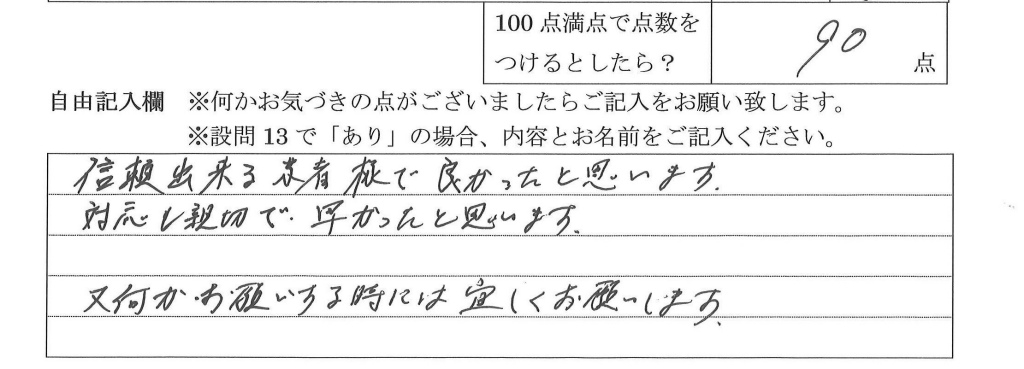 100点満点で点数を
つけるとしたら？
90 点
自由記入欄 ※何かお気づきの点がございましたらご記入をお願い致します。
※設問13で「あり」の場合、内容とお名前をご記入ください。
信頼出来る業者様で良かったと思います。
対応も親切で早かったと思います。
又何かお願いする時には宜しくお願いします。